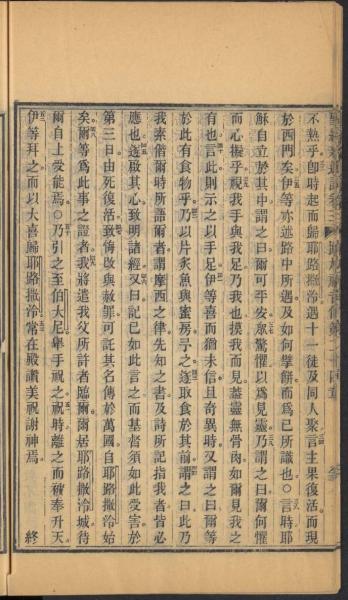 不熟乎卽時起而歸耶路撒冷遇十一徒及同人聚言主果復活而現
於西門矣伊等亦述路中所遇及如何擘餅而爲已所識也○言時耶
穌自立於其中謂之曰爾可平安衆驚懼以爲見靈乃謂之曰爾何懼
而心擬乎視我手與我足乃我也摸我而見蓋靈無骨肉如爾見我之
有也言此則示之以手足伊等喜而猶未信且奇異時又謂之曰爾等
於此有食物乎乃以片炙魚與蜜房予之遂取食於其前謂之曰此乃
我素偕爾時所語爾者謂摩西之律先知之書及詩所記指我者皆必
應也遂啟其心致明諸經又曰記已如此言之而基督須如此受害於
第三日由死復活致悔改與赦罪可託其名傳於萬國自耶路撒冷始
矣爾等爲此事之證者我將遣我父所許者臨爾爾居耶路撒冷城待
爾自上受能焉○乃引之至伯大尼舉手祝之祝時離之而被奉升天
伊等拜之而以大喜歸耶路撒冷常在殿讚美祝謝神焉
終